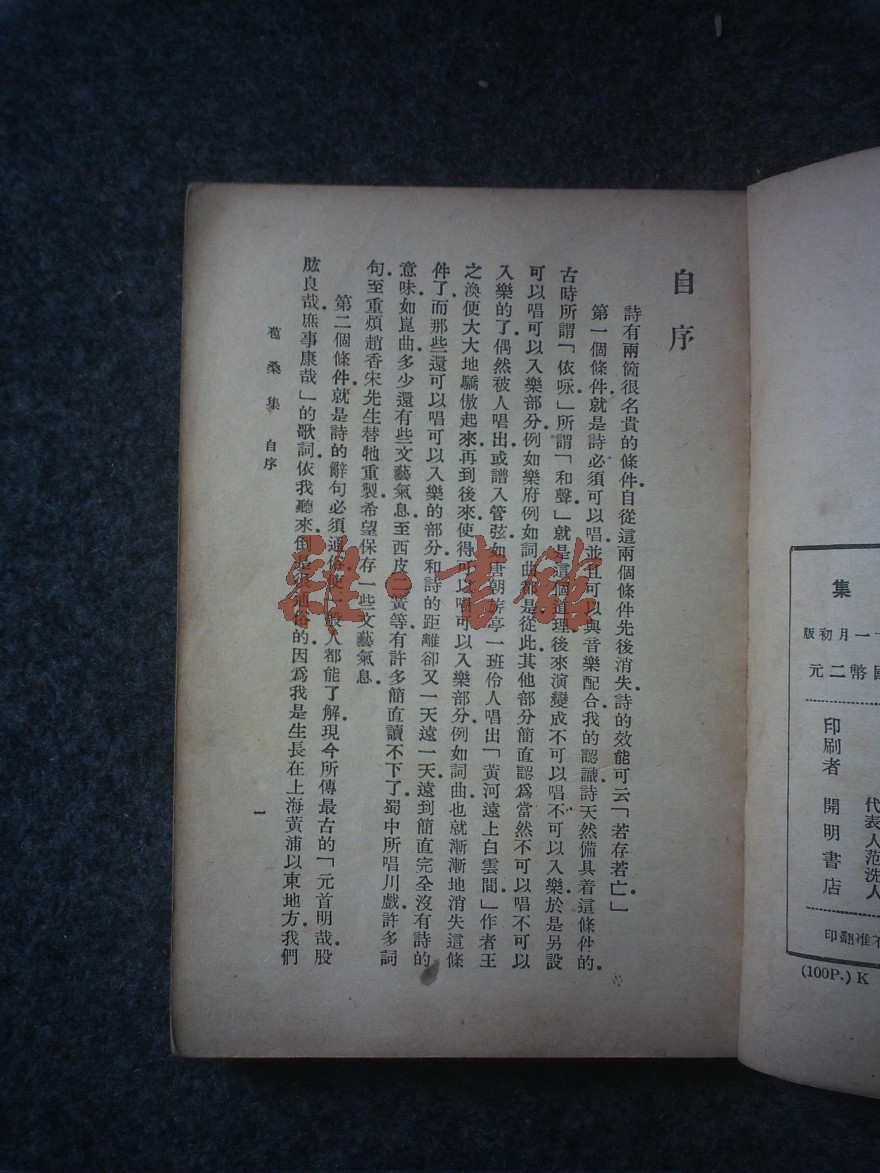 集
一月初版
國幣二元
印刷者 開明書店
代表人范洗人
不准翻印
(100P.) K
自序
詩有兩箇很名貴的條件.自從這兩個條件先後消失.詩的效能可云「若存若亡.」
第一個條件.就是詩必須可以唱.並且可以與音樂配合.我的認識.詩天然備具着這條件的.
古時所謂「依咏」所謂「和聲」就是這個道理.後來演變成不可以唱.不可以入樂.於是另設
可以唱可以入樂部分.例如樂府.例如詞曲.都是從此其他部分簡直認爲當然不可以唱不可以
入樂的了.偶然被人唱出.或譜入管弦.如唐朝旂亭一班伶人唱出「黃河遠上白雲間」作者王
之渙便大大地驕傲起來.再到後來.使得可以唱可以入樂部分.例如詞曲.也就漸漸地消失這條
件了.而那些還可以唱可以入樂的部分.和詩的距離.卻又一天遠一天.遠到簡直完全沒有詩的
意味.如崑曲.多少還有些文藝氣息.至西皮二簧等.有許多簡直讀不下了.蜀中所唱川戲.許多詞
句.至重煩趙香宋先生替牠重製.希望保存一些文藝氣息.
第二個條件.就是詩的辭句必須通俗.使一般人都能了解.現今所傳最古的「元首明哉.股
肱良哉.庶事康哉」的歌詞.依我聽來.倒是很通俗的.因爲我是生長在上海黃浦以東地方.我們
苞桑集 自序
一
雜·書館